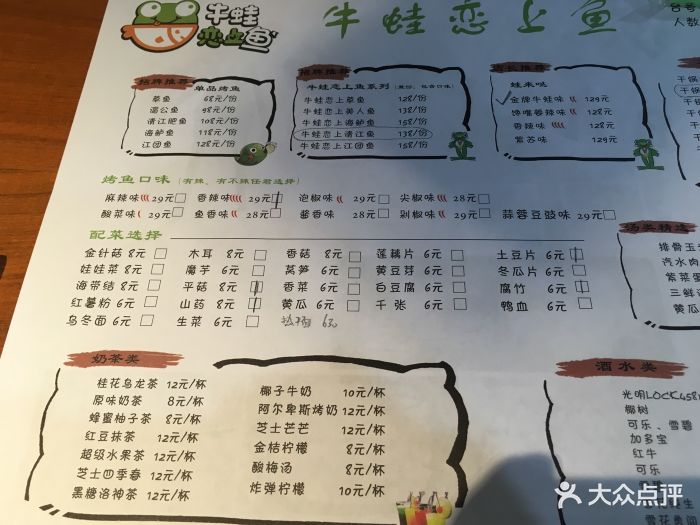 牛蛙
恋上鱼
牛蛙恋上鱼
台号
人数
招牌推荐 单品烤鱼
草鱼 68元/份
湄公鱼 98元/份
清江肥鱼 108元/份
海鲈鱼 118元/份
江团鱼 128元/份
招牌推荐
牛蛙恋上鱼系列
牛蛙恋上草鱼 128/份
牛蛙恋上美人鱼 138/份
牛蛙恋上海鲈鱼 158/份
牛蛙恋上清江鱼 138/份
牛蛙恋上江团鱼 158/份
店长推荐
蛙来哒
金牌牛蛙味 129元
馋嘴姜辣味 129元
香辣味 129元
紫苏味 129元
烤鱼口味 (有辣、有不辣任君选择)
麻辣味 29元 香辣味 29元 泡椒味 29元 尖椒味 28元
酸菜味 29元 鱼香味 28元 酱香味 28元 剁椒味 29元 蒜蓉豆豉味 29元
配菜选择
金针菇 8元 木耳 8元 香菇 8元 莲藕片 6元 土豆片 6元
娃娃菜 8元 魔芋 6元 莴笋 6元 黄豆芽 6元 冬瓜片 6元
海带结 8元 平菇 8元 香菜 8元 白豆腐 6元 腐竹 6元
红薯粉 6元 山药 8元 黄瓜 6元 千张 6元 鸭血 6元
乌冬面 6元 生菜 6元 6元
汤类精选
排骨玉
汽水肉
紫菜蛋
三鲜
黄瓜
奶茶类
桂花乌龙茶 12元/杯
原味奶茶 8元/杯
蜂蜜柚子茶 8元/杯
红豆抹茶 12元/杯
超级水果茶 12元/杯
芝士四季春 12元/杯
黑糖洛神茶 12元/杯
椰子牛奶 10元/杯
阿尔卑斯烤奶 12元/杯
芝士芒芒 12元/杯
金桔柠檬 8元/杯
酸梅汤 8元/杯
炸弹柠檬 10元/杯
酒水类
光明LOCK458
椰树
可乐、雪碧
加多宝
红牛
可乐
雪碧
大众点评